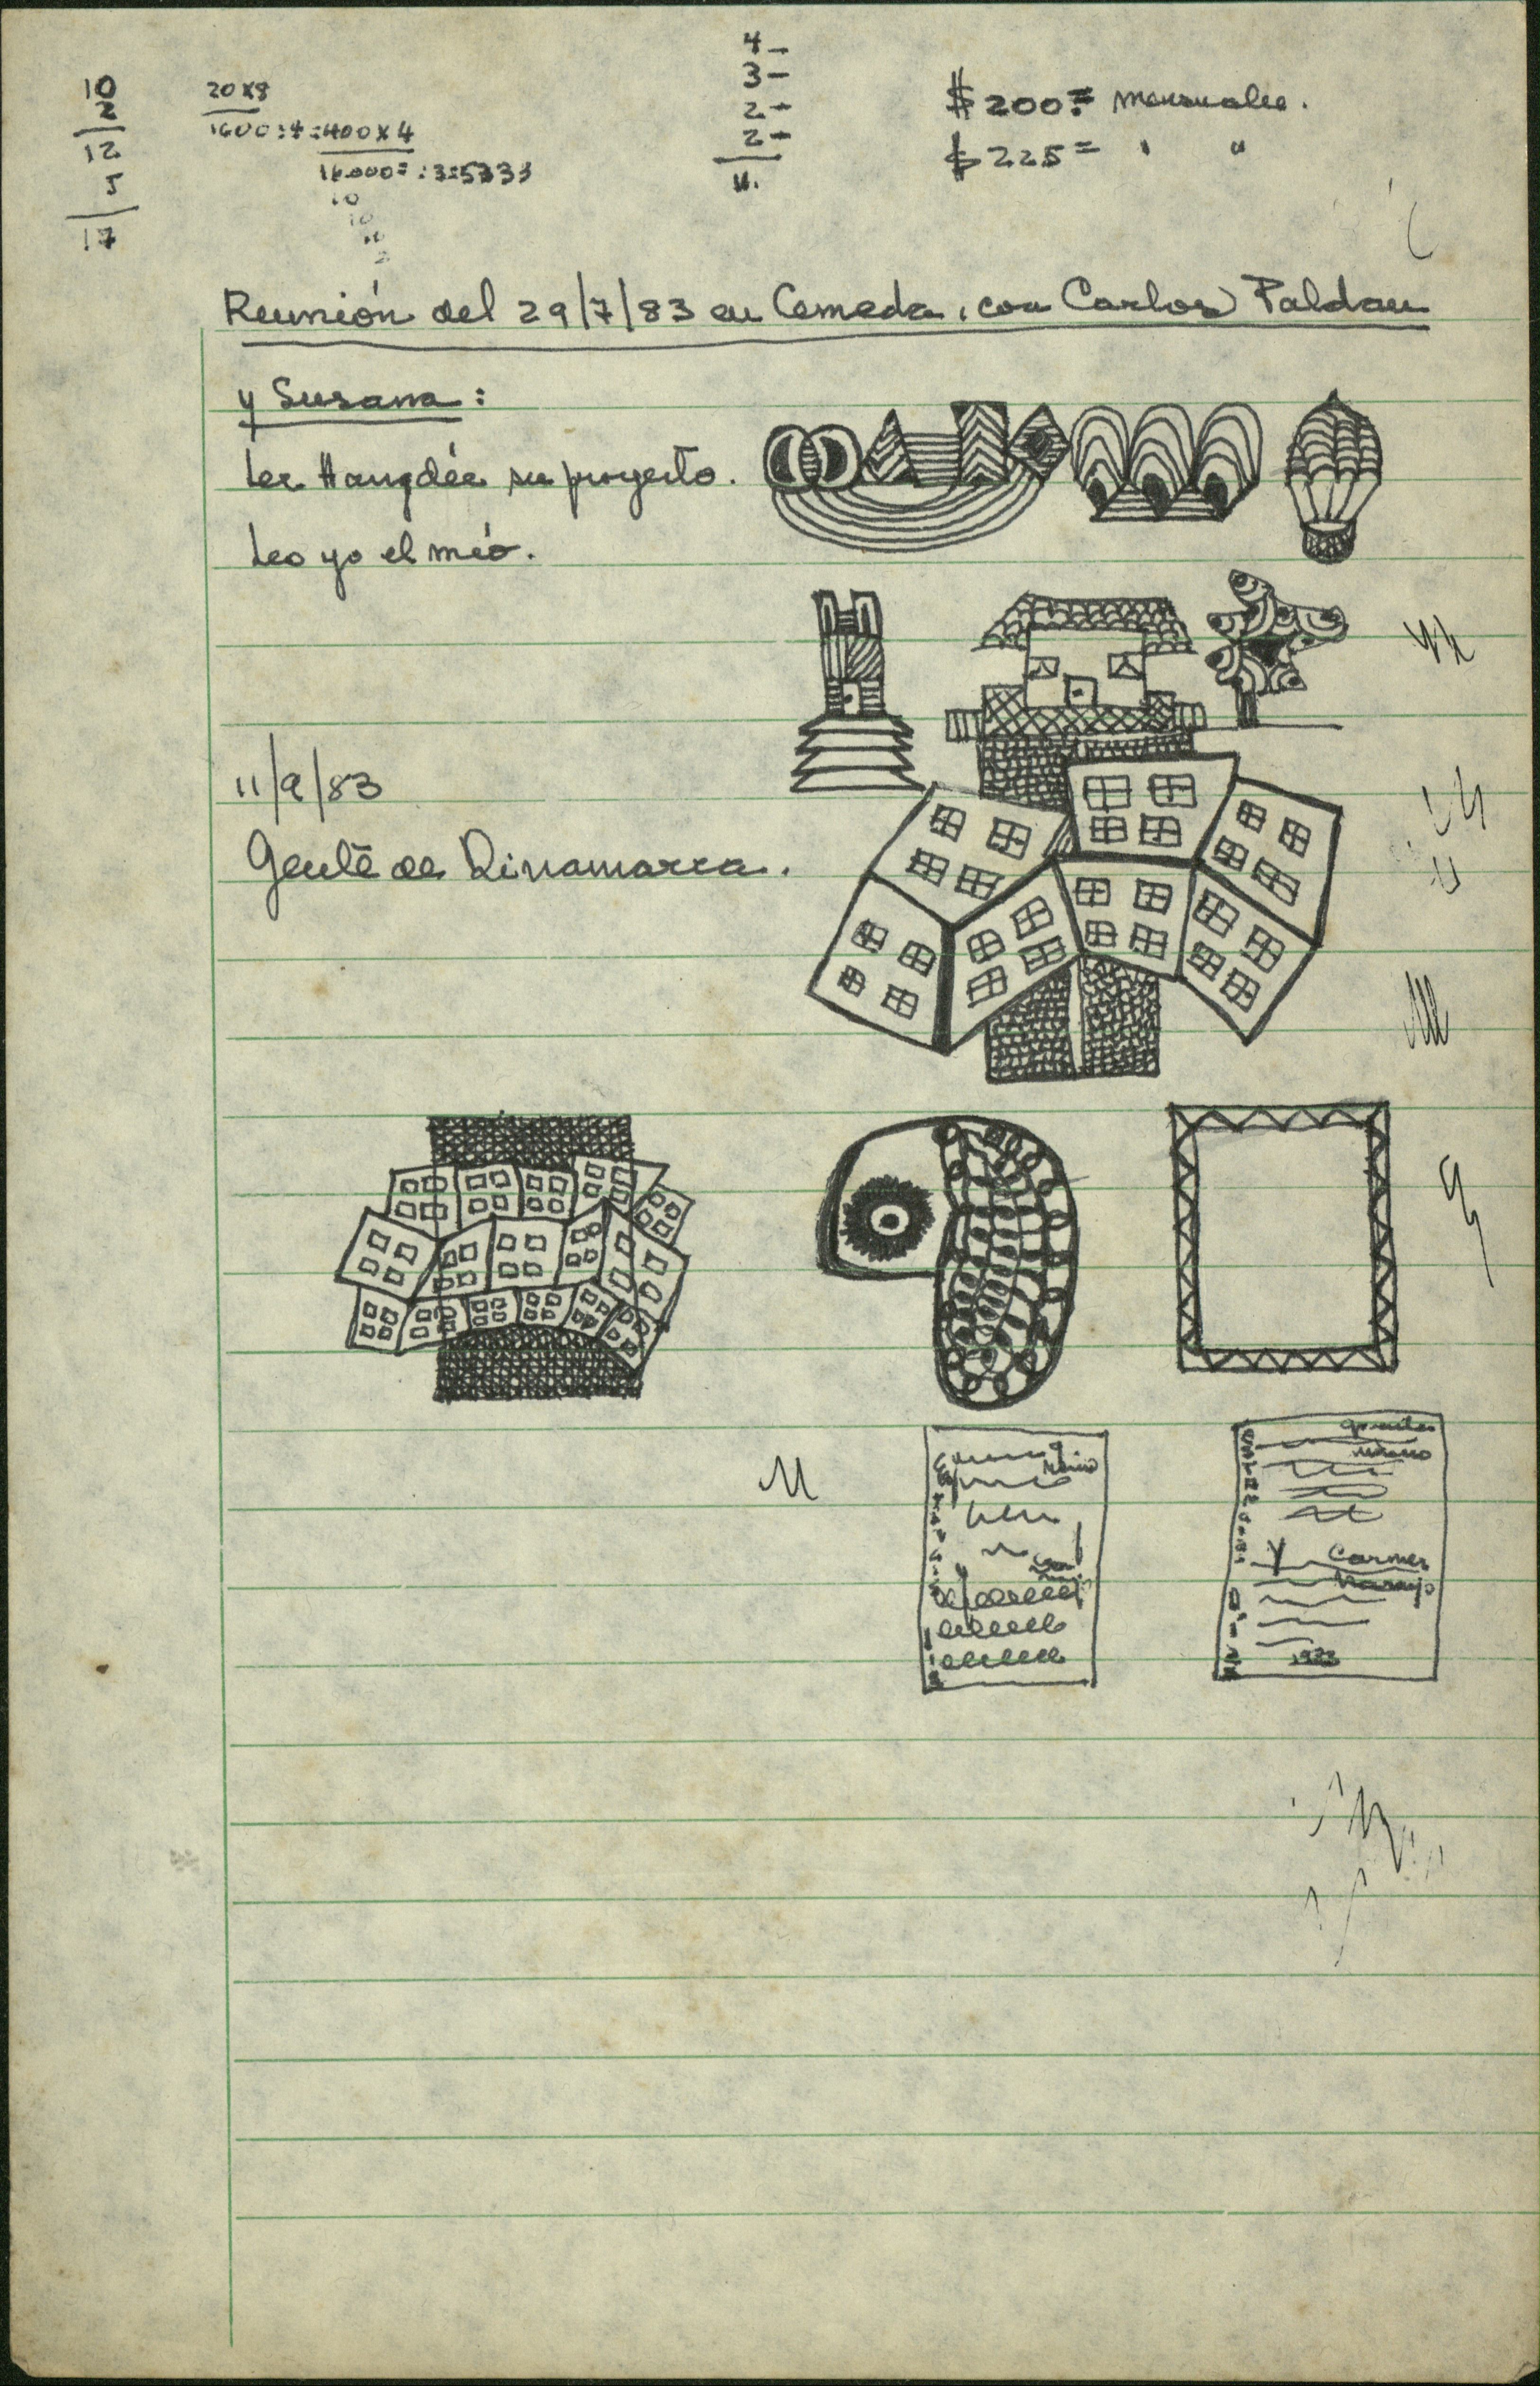 10
2
12
5
17
20 x 8
1600 : 4 = 400 x 4
: 3 = 5333
10
10
10
2
4 —
3 —
2 —
2 —
11.
$ 200= mensuales.
$ 225= " "
Reunión del 29/7/83 en Cemeda, con Carlos Paldau
y Susana:
Lee su proyecto.
Leo yo el mío.
11/9/83
Gente de Dinamarca.
Carmen
Naranjo